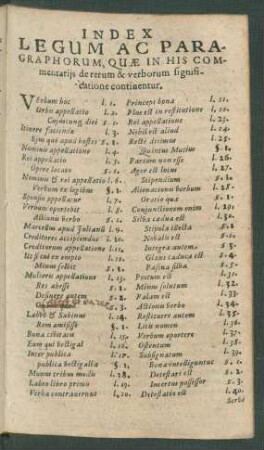 INDEX
LEGUM AC PARA-
GRAPHORUM, QUÆ IN HIS COM-
mentarijs de rerum & verborum signifi-
catione continentur.
Verbum hoc l. 1.
Urbis appellatio l. 2.
Cujusque diei s. 1.
Itinere faciendo l. 3.
Ejus qui apud hostes s. 1.
Nominis appellatione l. 4.
Rei appellatio l. 5.
Opere locato s. 1.
Nominis & rei appellatio l. 6.
Verbum ex legibus §. 1.
Sponsio appellatur l. 7.
Verbum oportebit l. 8.
Actionis verbo s. 1.
Marcellus apud Julianũ l. 9.
Creditores accipiendos l. 10.
Creditorum appellatione l. 11.
Minus solvit s. 1.
Mulieris appellatione l. 13.
Res abesse s. 1.
Desinere autem s. 2.
s. 3.
Labeo & Sabinus l. 14.
Rem amisisse §. 1.
Bona civitatis l. 15.
Eum qui vectigal l. 16.
Inter publica l. 17.
publica vectigalia §. 1.
Munus tribus modis l. 18.
Labeo libro primo l. 19.
Verba contraxerunt l. 20.
Princeps bona l. 21.
Plus est in restitutione l. 22.
Rei appellatione l. 23.
Nihil est aliud l. 24.
Recte dicimus l. 25.
Quintus Mutius §. 1.
Partum non esse l. 26.
Ager est locus l. 27.
Stipendium s. 1.
Alienationis verbum l. 28.
Oratio quæ s. 1.
Conjunctionem enim l. 29.
Silva cædua est l. 30.
Stipula illecta s. 1.
Novalis est s. 2.
Integra autem s. 3.
Glans caduca est s. 4.
Pascua silva s. 5.
Pratum est l. 31.
Minus solutum l. 32.
Palam est l. 33.
Actionis verbo l. 34.
Restituere autem l. 35.
Litis nomen l. 36.
Verbum oportere l. 37.
Ostentum l. 38.
Subsignatum l. 39.
Bona intelliguntur s. 1.
Detestari est s. 2.
Incertus possessor s. 3.
Detestatio est l. 40.